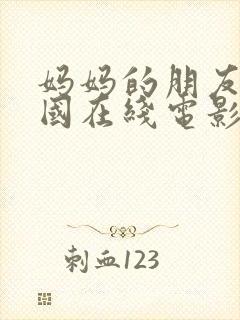 妈妈的朋友
國在綫電影
刺血123